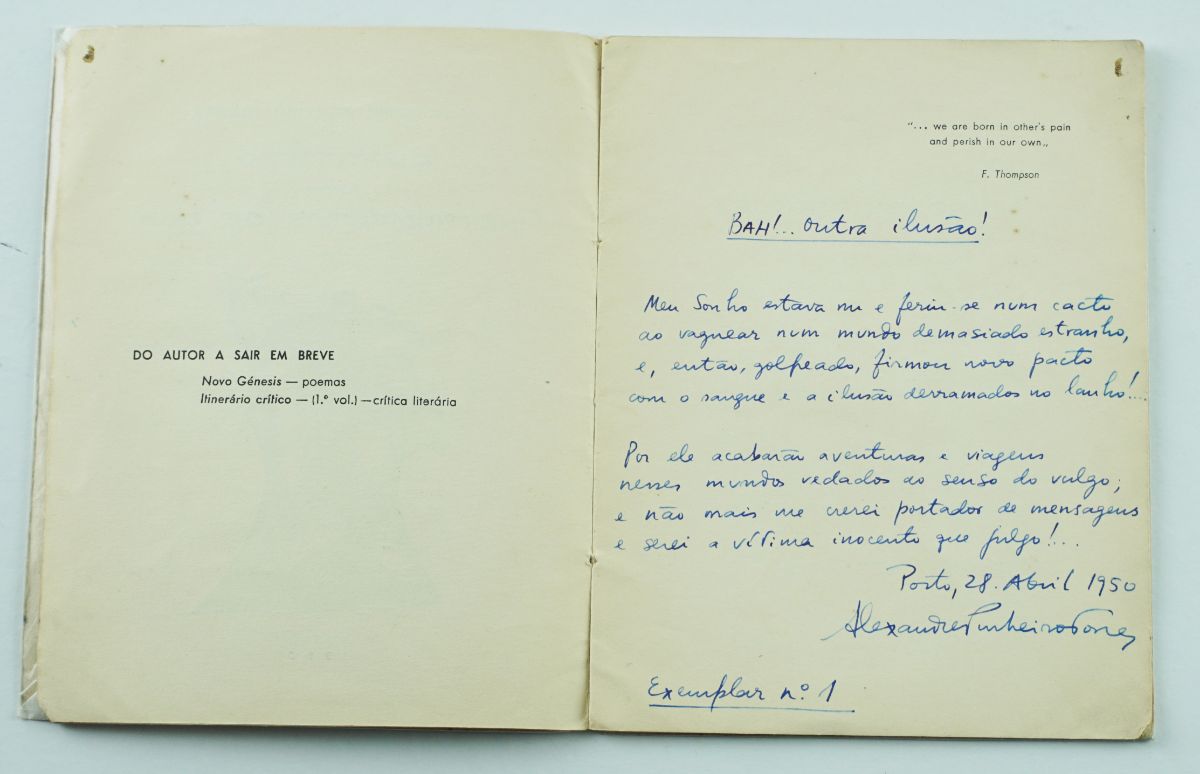 DO AUTOR A SAIR EM BREVE
Novo Génesis — poemas
Itinerário crítico — (1.º vol.) — crítica literária
"... we are born in other's pain
and perish in our own„
F. Thompson
BAH!.. outra ilusão!
Meu Sonho estava nu e feriu-se num cacto
ao vaguear num mundo demasiado estranho,
e, então, golpeado, firmou novo pacto
com o sangue e a ilusão derramados no lanho!...
Por ele acabarão aventuras e viagens
nesses mundos vedados ao senso do vulgo;
e não mais me crerei portador de mensagens
e serei a vítima inocente que julgo!...
Porto, 28. Abril 1950
Alexandre Pinheiro Torres
Exemplar n.º 1